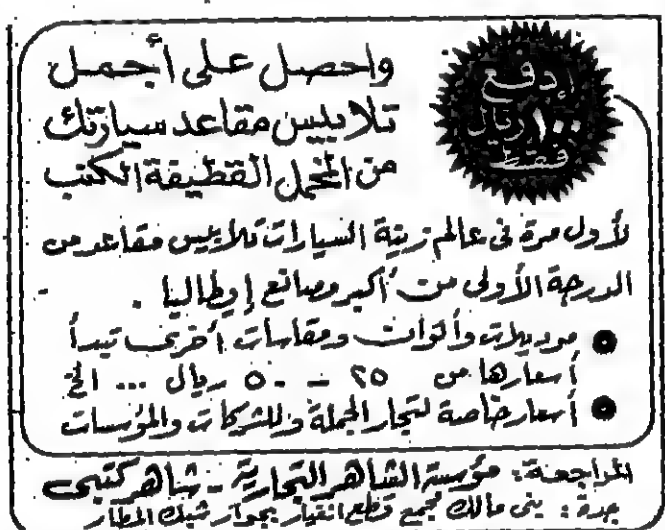 إدفع
١٠٠ ريال
فقط
واحصل على أجمل
تلابيس مقاعد سيارتك
من المخمل القطيفة الكتب
لأول مرة فى عالم زينة السيارات تلابيس مقاعد من
الدرجة الأولى من أكبر مصانع إيطاليا .
موديلات وألوان ومقاسات أخرى تبدأ
أسعارها من ٢٥ - ٥٠ ريال ... الخ
أسعار خاصة لتجار الجملة وللشركات والمؤسسات
المراجعة: مؤسسة الشاهر التجارية - شاهر كتبى
جدة : بنى مالك مجمع قطع الغيار بجوار شبك المطار